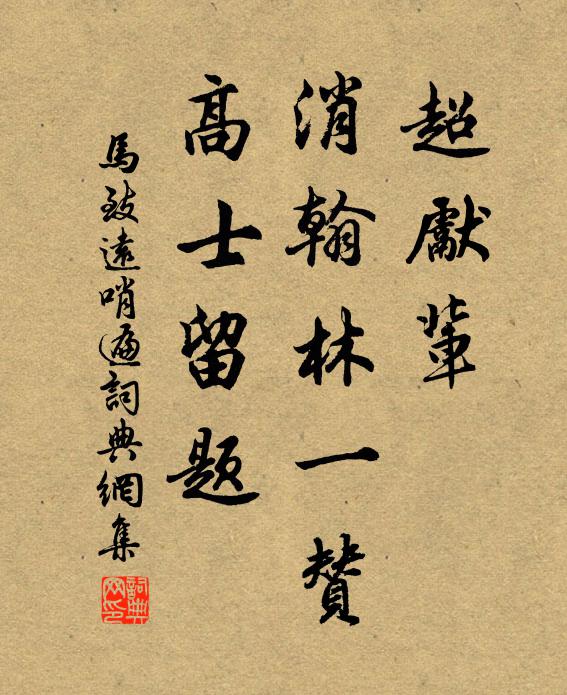 超獻輩
消翰林一贊
高士留題
馬致遠哨遍詞典網集
詞典网印